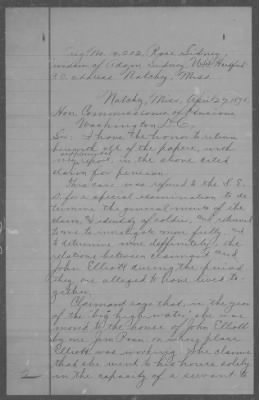 No. 9,202, Rose Sidney,
widow of Adam Sidney
P.O. address Natchez, Miss.
Natchez, Miss, April 27, 189
Hon. Commissioner of Pensions
Washington D.C.
Sir: I have the honor to return
herewith all of the papers, with
my supplemental report, in the above cited
claim for pension.
This case was referred to the S. E.
D. for a special examination to de-
termine the general merits of the
claim & identity of soldier, and returned
to me to investigate more fully and
to determine more definitely, the
relations between claimant and
John Elliott during the period
they are alleged to have lived to-
gether.
Claimant says that, in the year
of the "big high water," she was
moved to the house of John Elliott
by one Jim on place
Elliott was working. She claims
that she went to his house solely
in the capacity of a servant to